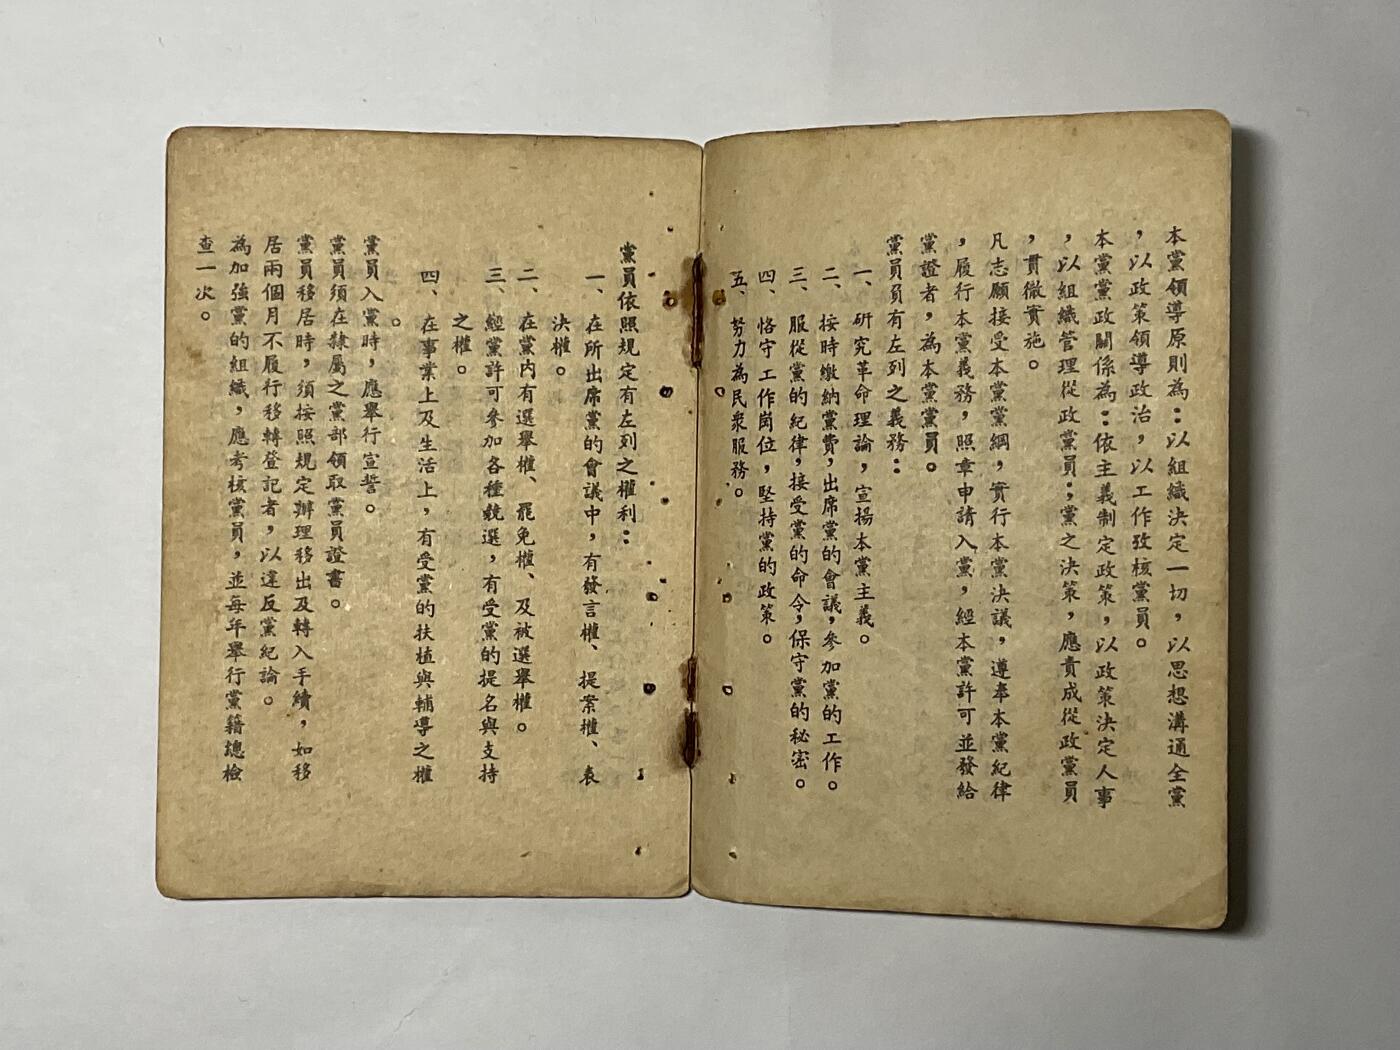 本黨領導原則為：以組織決定一切，以思想溝通全黨
，以政策領導政治，以工作攷核黨員。
本黨黨政關係為：依主義制定政策，以政策決定人事
，以組織管理從政黨員；黨之決策，應責成從政黨員
，貫徹實施。
凡志願接受本黨黨綱，實行本黨決議，遵奉本黨紀律
，履行本黨義務，照章申請入黨，經本黨許可並發給
黨證者，為本黨黨員。
黨員負有左列之義務：
一、研究革命理論，宣揚本黨主義。
二、按時繳納黨費，出席黨的會議，參加黨的工作。
三、服從黨的紀律，接受黨的命令，保守黨的秘密。
四、恪守工作崗位，堅持黨的政策。
五、努力為民眾服務。
黨員依照規定有左列之權利：
一、在所出席黨的會議中，有發言權、提案權、表
決權。
二、在黨內有選舉權、罷免權、及被選舉權。
三、經黨許可參加各種競選，有受黨的提名與支持
之權。
四、在事業上及生活上，有受黨的扶植與輔導之權
。
黨員入黨時，應舉行宣誓。
黨員須在隸屬之黨部領取黨員證書。
黨員移居時，須按照規定辦理移出及轉入手續，如移
居兩個月不履行移轉登記者，以違反黨紀論。
為加強黨的組織，應考核黨員，並每年舉行黨籍總檢
查一次。